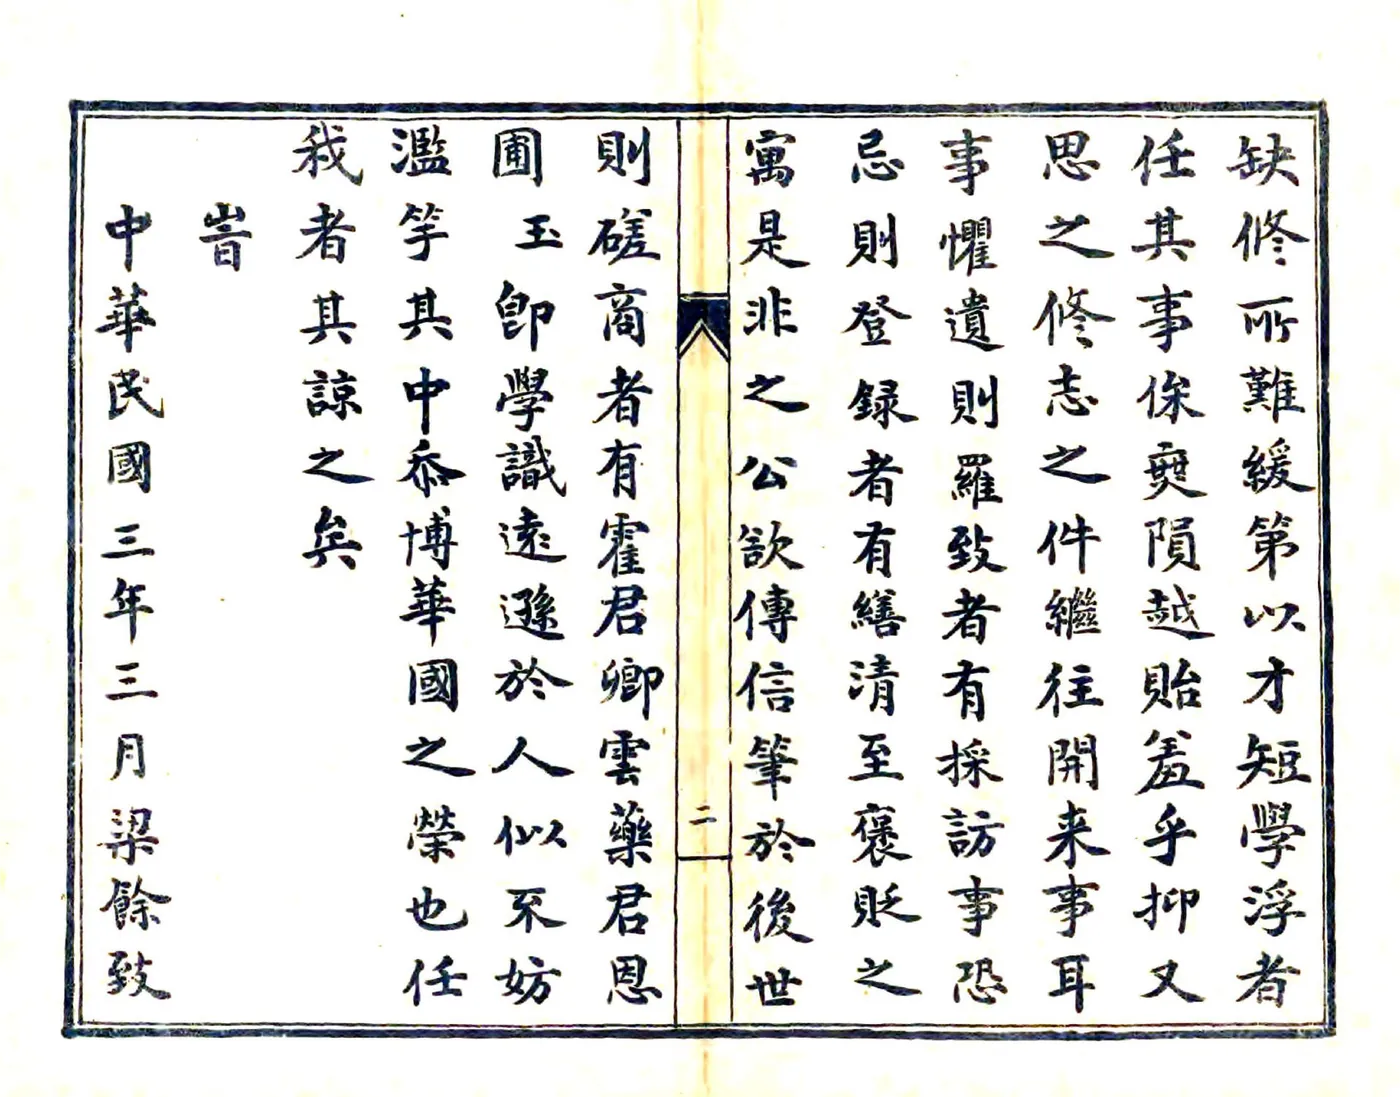 缺修所難緩第以才短學浮者
任其事倸奭隕越貽羞乎抑又
思之修志之件繼往開来事耳
事懼遺則羅致者有採訪事恐
忌則登録者有繕清至褒貶之
寓是非之公欲傳信筆於後世
二
則磋商者有霍君卿雲藥君恩
圃玉卽學識遠遜於人似不妨
濫竽其中忝博華國之榮也任
我者其諒之矣
旹
中華民國三年三月梁餘致